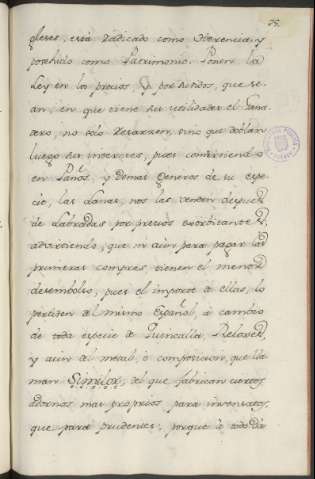 35.
gleses, está radicado como Herencia, y
posehido como Patrimonio. Ponen la
Ley en los precios, y por subidos, que se-
an, en que tiene sus utilidades el Gana-
dero, no solo resarcen, sino que doblan
luego sus intereses, pues convirtiendo
en Paños, y demas Generos de su espe-
cie, las Lanas, nos las venden despues
de Labradas por precios exorbitantes,
advirtiendo, que ni aun para pagar las
primeras compras, tienen el menor
desembolso, pues el importe de ellas, lo
perciben del mismo Español, à cambio
de toda especie de Quincalla, Reloxes,
y aun del metal, ò composicion, que lla-
man Similor, del que fabrican ciertos
adornos mas proprios para insensatos,
que para prudentes, porque à todo dà